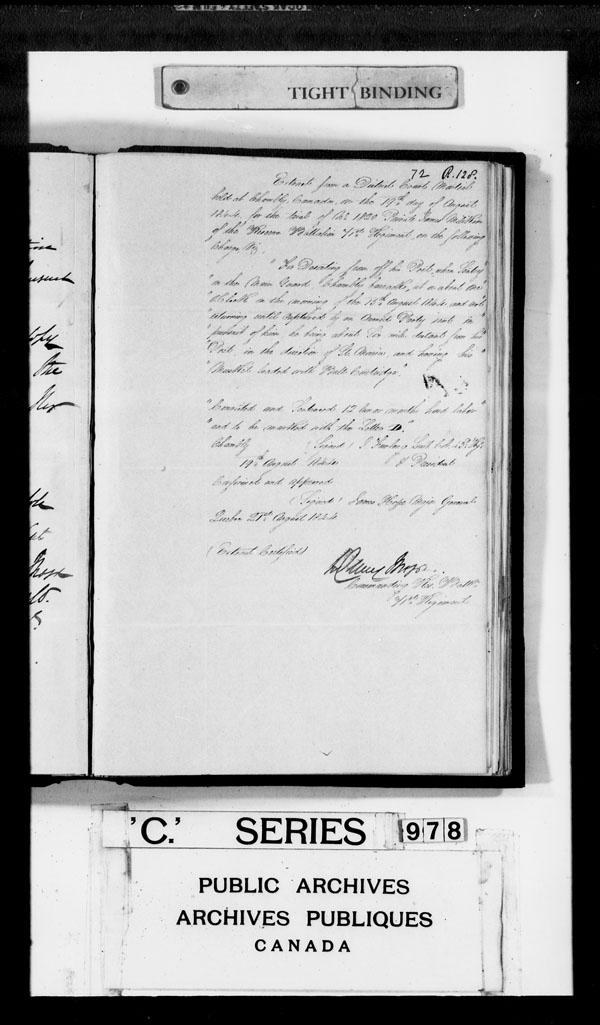 TIGHT BINDING
72 P. 128.
Extract from a District Court Martial
held at Chambly, Canada, on the 19th day of August
1844, for the trial of No 1820 Private James
of the Reserve Battalion 71st Regiment, on the following
Charge, Viz.
"For Deserting from off his Post, when Sentry"
"on the Main Guard, Chambly Barracks, at or about one
"O'Clock in the morning of the 15th August 1844 and not
"returning until captured by an Armed Party sent in"
"pursuit of him, he being about Six miles distant from his"
"Post, in the direction of St. and having his"
"Musket loaded with Ball Cartridge."
"Convicted and Sentenced 12 months hard labor"
"and to be marked with the Letter D."
Chambly (Signed) J. Lieut. Col.
19th August President
Confirmed and approved
(Signed) James Hope Major General
Quebec 21st August 1844
(Extract Certified)
Commanding Res. Battn
71st Regiment
the
'C.' SERIES 978
PUBLIC ARCHIVES
ARCHIVES PUBLIQUES
CANADA